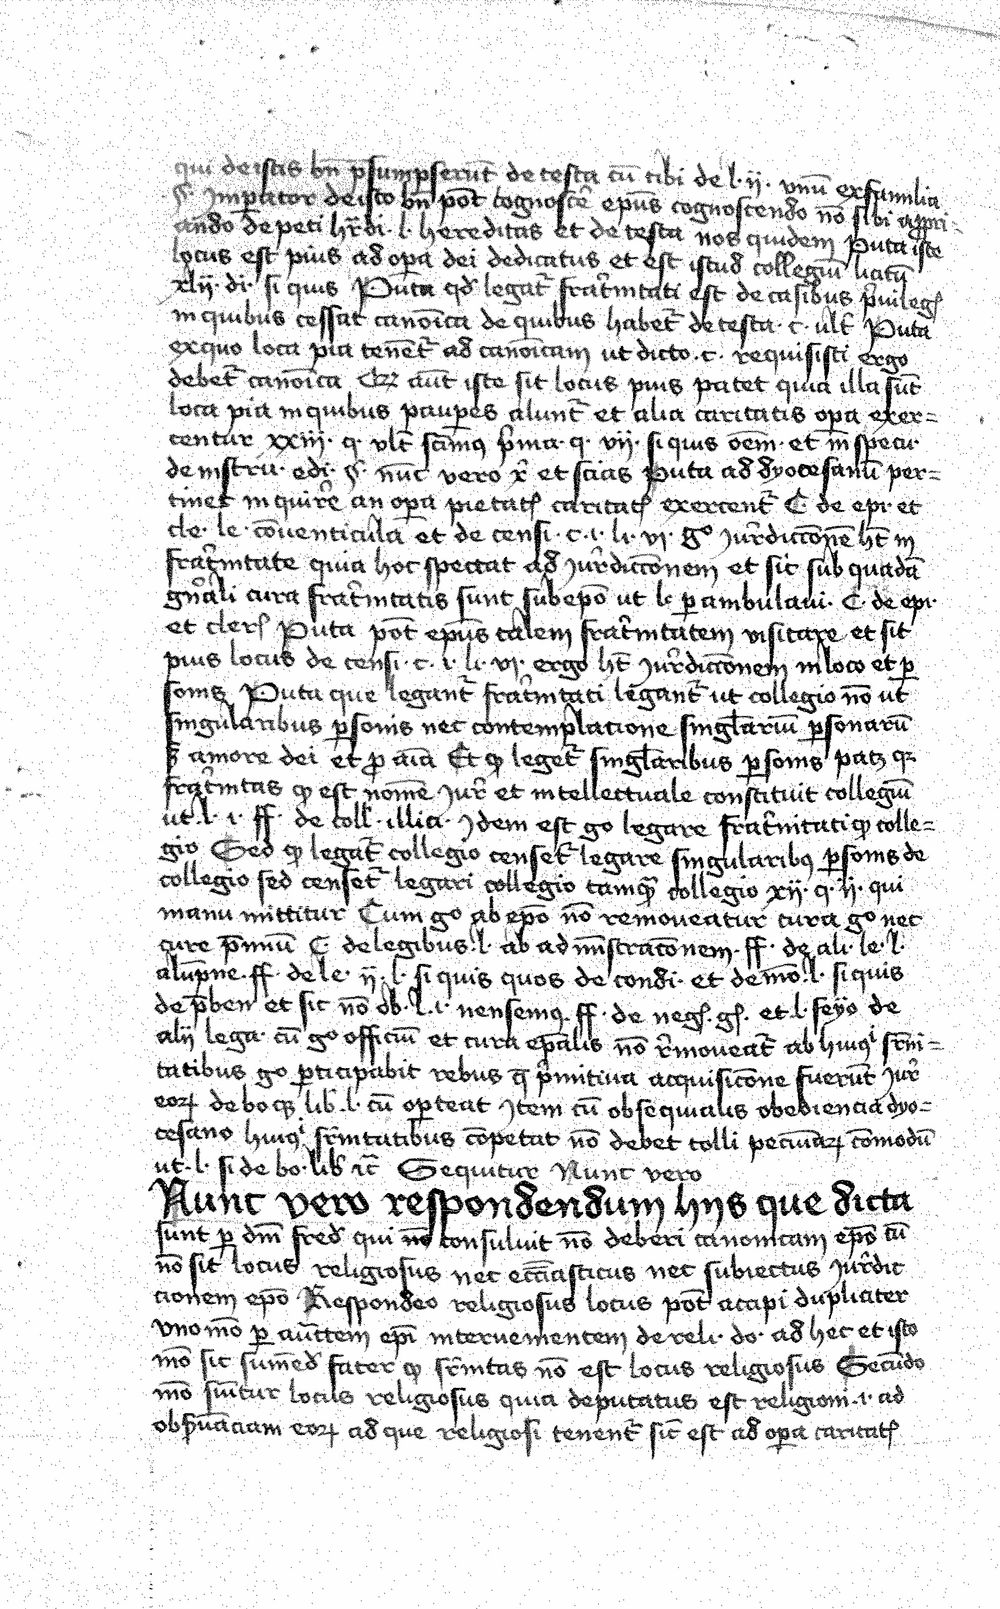 qui de istis bn̄ p̄sumpserūt de testa cū tibi de l· ii· vnū ex familia
§· Jmp̄ator de isto bn̄ pōt cognoscẽ ep̄us cognoscendo nō sibi appri-
ando de peti hr̄di· l· hereditas et de testa nos quidem Puta iste
locus est pius ad opa dei dedicatus et est istud collegiū licitū
xlii· di· si quis Puta qd' legat̄ frat̄nitati est de casibus p̄uileg'
in quibus cessat canōica de quibus habet̄ de testa· c· ult̄ Puta
ex quo loca pia tenēt̄ ad canōicam ut dicto· c· requisisti ergo
debet̄ canōica aūt iste sit locus pius patet quia illa sūt
loca pia in quibus paupes alunt̄ et alia caritatis opa exer=
centur xxiii· q· vlt̄ scim9 p̄ma· q· vii· si quis oēm· et in specu·
de instru· edi· §· nūc vero r̄ et scias Puta ad dyocesanū per=
tinet inquirẽ an opa pietat' caritat' exercent̄ C· de epi· et
cle· le· cōuenticula et de censi· c· i· li· vi· g° jur̄dicc̄onē ht̄ in
frat̄nitate quia hoc spectat ad jur̄dicc̄onem et sic sub quadā
gn̄ali cura frat̄nitatis sunt sub epō ut l· pambulaui· C· de epi·
et cler' Puta pōt ep̄us talem frat̄nitatem visitare et sit
pius locus de censi· c· i· li· vi· ergo ht̄ jur̄dicc̄onem in loco et p
sonis Puta que legant̄ frat̄nitati legant̄ ut collegio nō ut
singularibus p̄sonis nec contemplatione singlariū p̄sonarū
s̄ amore dei et pro aīa Et q leget̄ singlaribus p̄sonis patz qz
frat̄nitas q est nomē jur̄ et intellectuale constituit collegiū
ut· l· i· ff· de coll· illici· Jdem est go legare frat̄nitati q colle=
gio Sed q legat̄ collegio censet̄ legare singularib9 p̄sonis de
collegio sed censet̄ legari collegio tamq̄ collegio xii· q· ii· qui
manu mittitur Cum go ab epō nō remoueatur cura go nec
cure p̄miū C· de legibus· l· ab admīstrac̄onem· ff· de ali· le· l·
alūpne· ff· de le· ii· l· si quis quos de condi· et demō· l· si quis
de p̄ben et sic nō ob· l· i· nensem9· ff· de neg'· g'· et l· feyo de
alii lega· cū go officiū et cura ep̄alis nō r̄moueat̄ ab hui9 fr̄ni=
tatibus go p̄ticipabit rebus q̄ p̄mitiua acquisic̄one fuerūt jur̄
eoꝝ de boqz lib· l· cū opteat Jtem cū obsequialis obediencia dyo=
cesano hui9 fr̄nitatibus cōpetat nō debet tolli pecuniaꝝ cōmodū
ut· l· si de bo· lib ic̄ Sequitur Nunc vero
Nunc vero respondendum hiis que dicta
sunt p dm̄ fred' qui nō consuluit nō deberi canonicam epō cū
nō sit locus religiosus nec ecc̄iasticus nec subiectus jur̄dic
tionem epō Respondeo religiosus locus pōt accipi dupliciter
vno mō p auc̄tem epī interuenientem de reli· do· ad hec et isto
mō sic sumēd' fater q fr̄nitas nō est locus religiosus Secūdo
mō sūitur locus religiosus quia deputatus est religioni· i· ad
obp̄uāciam eoꝝ ad que religiosi tenent̄ sic̄ est ad opa caritat'